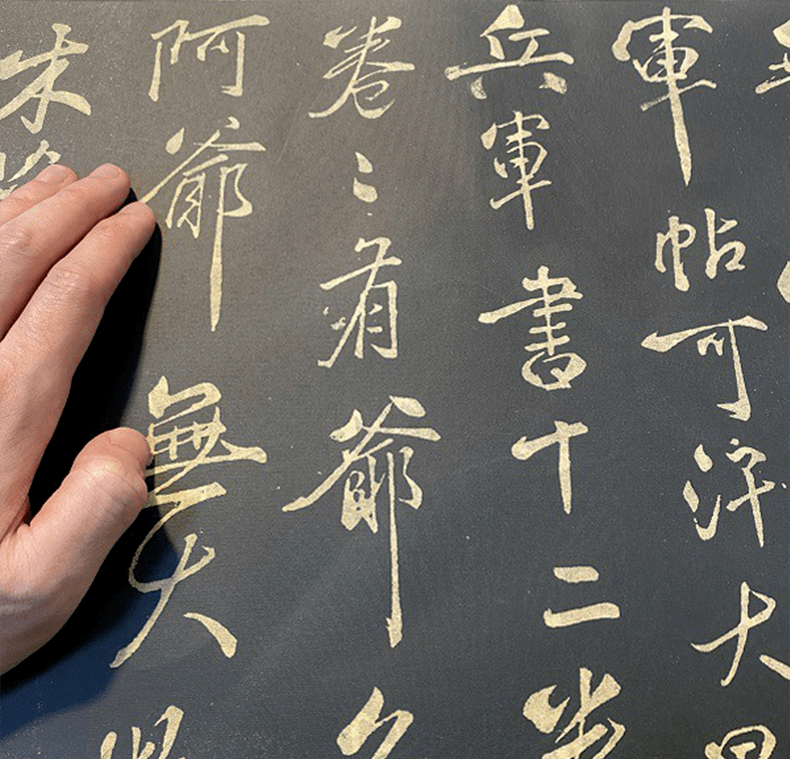 軍帖可汗大
兵軍書十二
卷〻有爺
阿爺無大
木